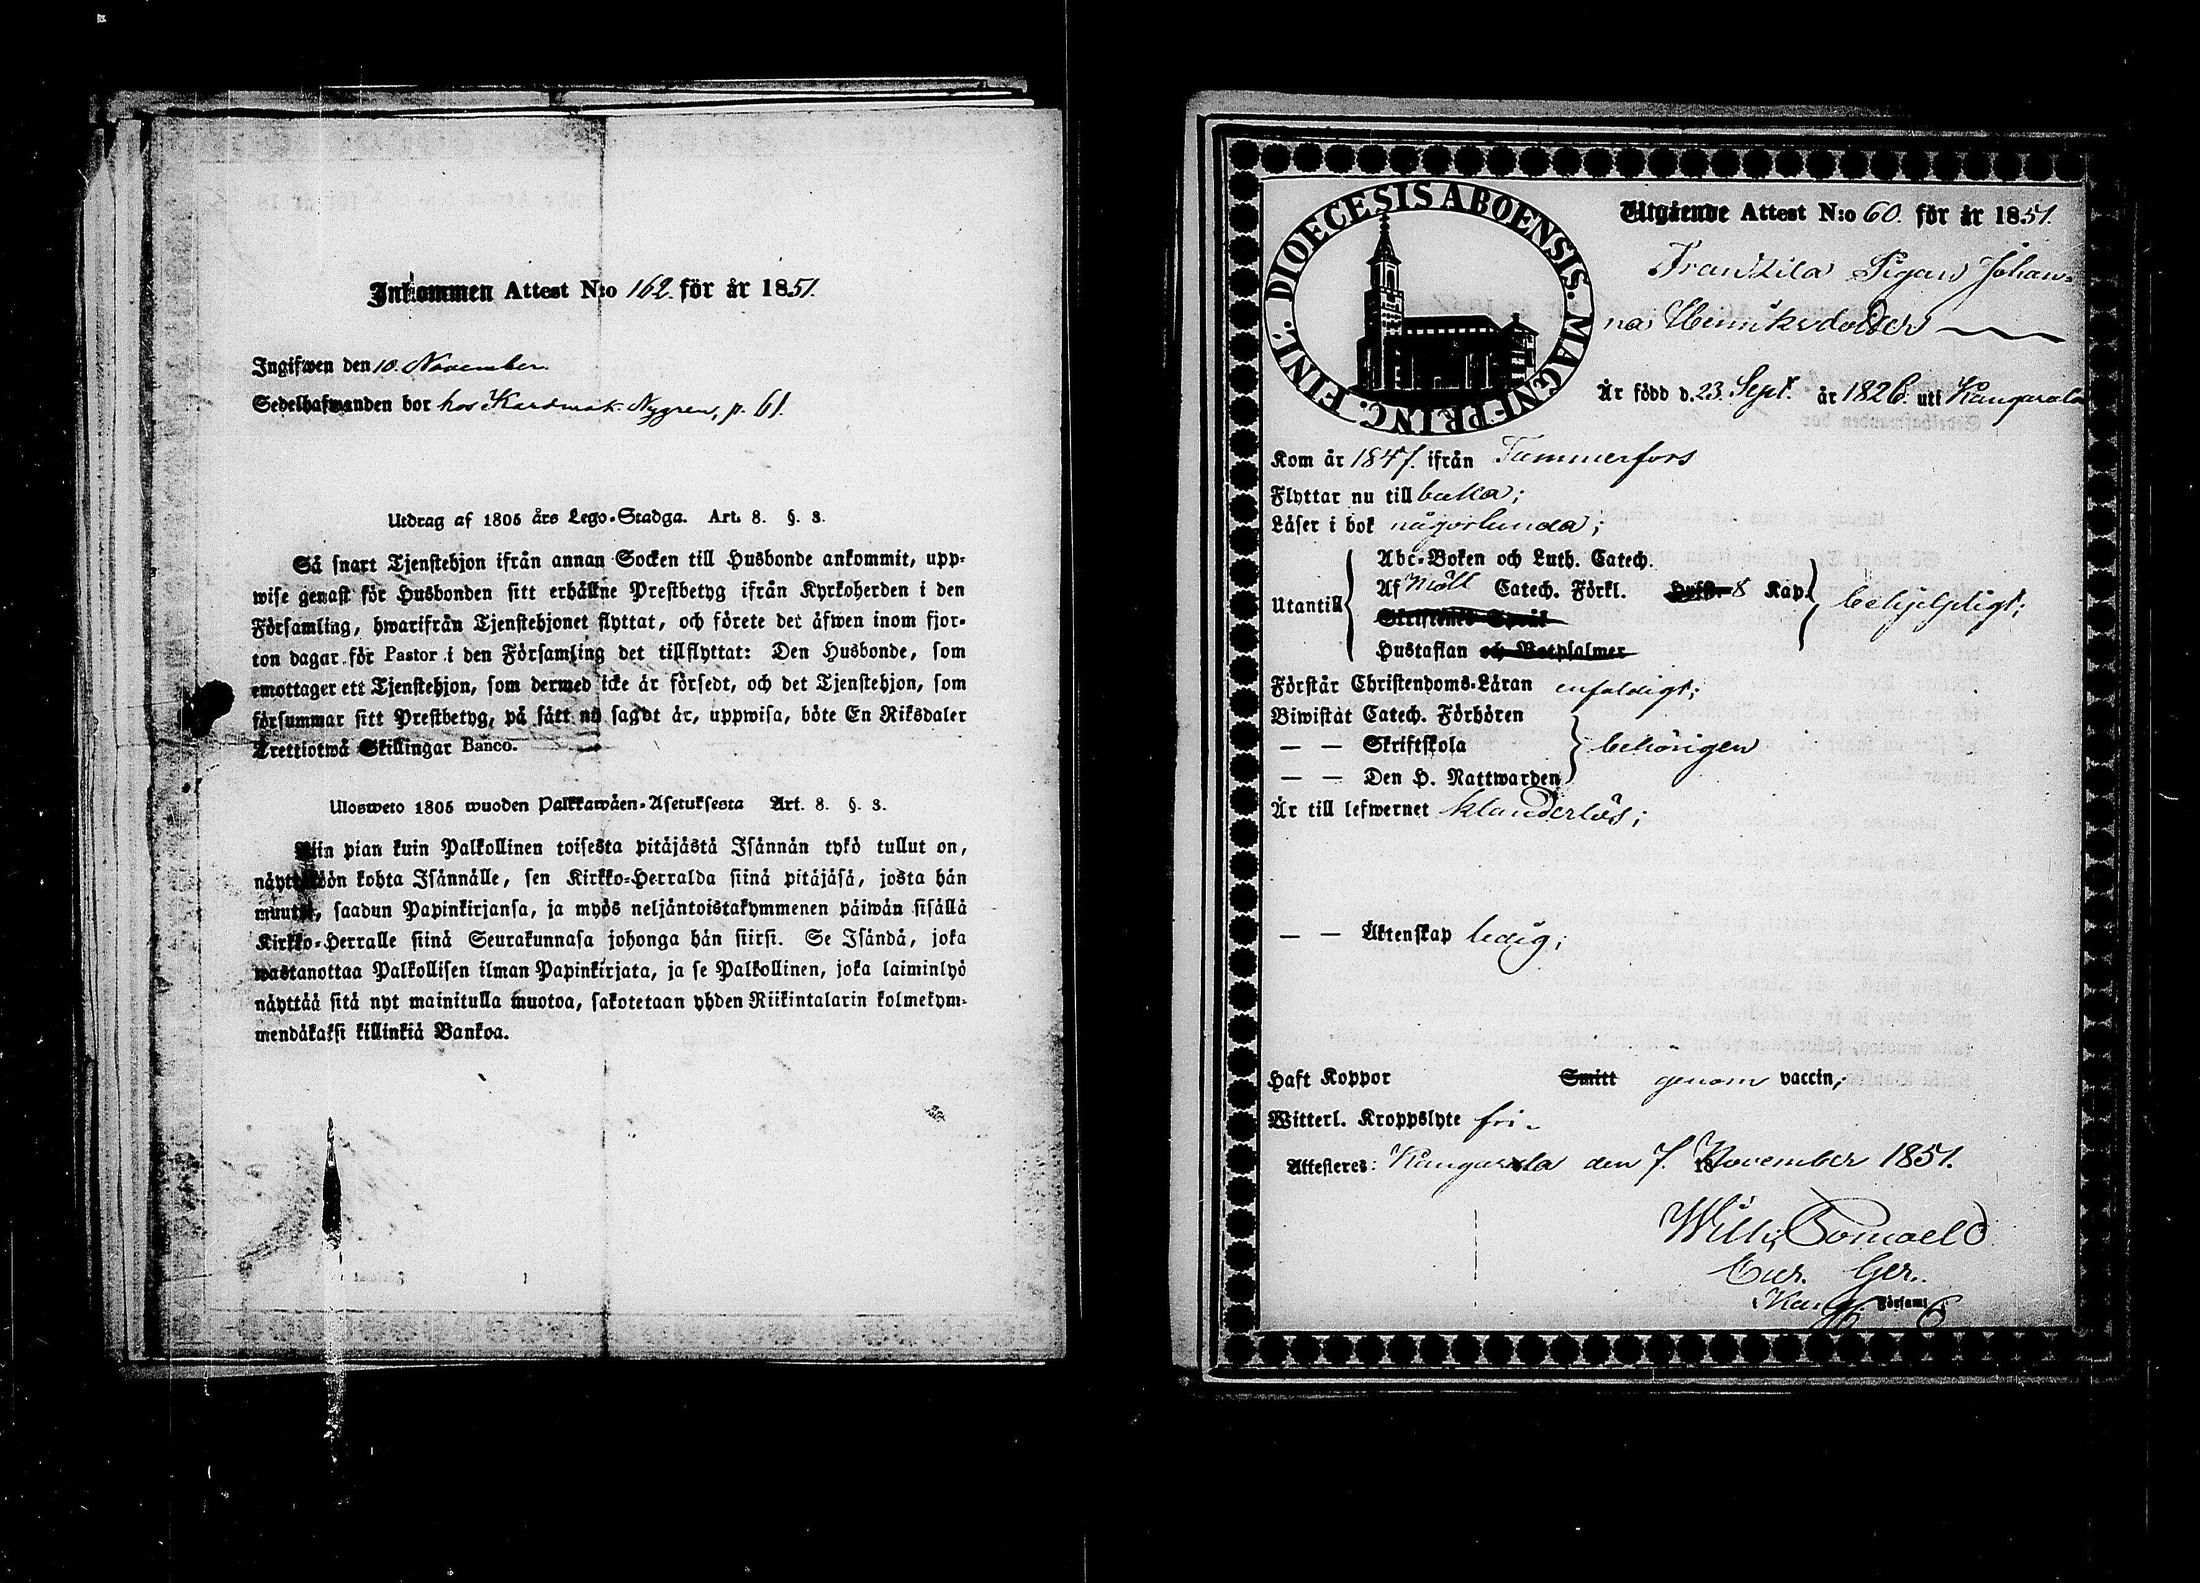 Inkommen Attest N:o 162. för år 1851.
Ingifwen den 10. November.
Sedelhafwanden bor hos Kardmak. Nygren, p. 61.
Utdrag af 1805 års Lego-Stadga. Art. 8. §. 3.
Så snart Tjenstehjon ifrån annan Socken till Husbonde ankommit, upp-
wise genast för Husbonden sitt erhållne Prestbetyg ifrån Kyrkoherden i den
Församling, hwarifrån Tjenstehjonet flyttat, och förete det äfwen inom fjor-
ton dagar för Pastor i den Församling det tillflyttat: Den Husbonde, som
emottager ett Tjenstehjon, som dermed icke är försedt, och det Tjenstehjon, som
försummar sitt Prestbetyg, på sätt nu sagdt är, uppwisa, böte En Riksdaler
Trettiotwå Skillingar Banco.
Ulosweto 1805 wuoden Palkkawäen-Asetuksesta Art. 8. §. 3.
Niin pian kuin Palkollinen toisesta pitäjästä Isännän tykö tullut on,
näyttäköön kohta Isännälle, sen Kirkko-Herralda siinä pitäjäsä, josta hän
muutti, saadun Papinkirjansa, ja myös neljäntoistakymmenen päiwän sisällä
Kirkko-Herralle siinä Seurakunnasa johonga hän siirsi. Se Isändä, joka
wastanottaa Palkollisen ilman Papinkirjata, ja se Palkollinen, joka laiminlyö
näyttää sitä nyt mainitulla muotoa, sakotetaan yhden Riikintalarin kolmekym-
mendäkaksi killinkiä Bankoa.
DIOECESIS ABOENSIS. MAGNI PRINC. FINL.
Utgående Attest N:o 60. för år 1851.
Frantzila Pigan Johan-
na Henriksdotter
Är född d. 23. Sept. år 1826. uti Kangasala
Kom år 1847. ifrån Tammerfors
Flyttar nu till baka;
Läser i bok någorlunda;
Abc-Boken och Luth. Catech.
Utantill Af Möll Catech. Förkl. 8 Kap. behjelpligt;
Skriftenes Språk
Hustaflan och Botpsalmer
Förstår Christendoms-Läran enfaldigt;
Biwistat Catech. Förhören
— — Skriftskola behörigen
— — Den H. Nattwarden
Är till lefwernet klanderlös;
— — Äktenskap ledig;
Haft Koppor Smitt genom vaccin;
Witterl. Kroppslyte fri.
Attesteres: Kangasala den 7. 18 November 1851.
Cur. Ger.
Kang. Församl.